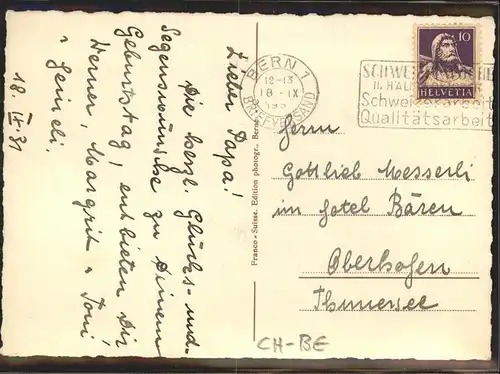 18. IX. 31
Lieber Papa!
Die herzl. Glücks- und
Segenswünsche zu Deinem
Geburtstag, entbieten Dir
Werner, Margrit & Toni
& Heineli.
Franco-Suisse. Edition photogr., Berne
BERN 1
12-13
18-IX
BRIEFVERSAND
II. HAL
Schweizerarbeit
Qualitätsarbeit
10
HELVETIA
Herrn
Gottlieb Messerli
im Hotel Bären
Oberhofen
Thunersee
CH-BE